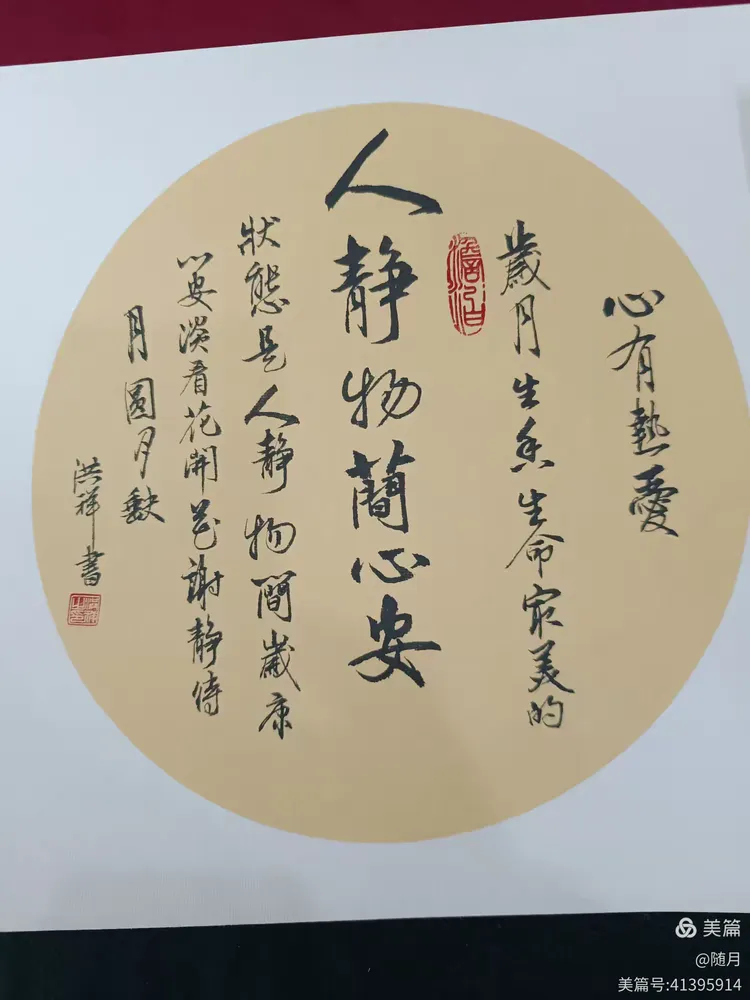 心有熱愛
歲月生香生命最美的
澹泊
人静物簡心安
狀態是人静物間歲康
心安淡看花開花謝静待
月圓月缺
洪祥書
美篇
@随月
美篇号:41395914